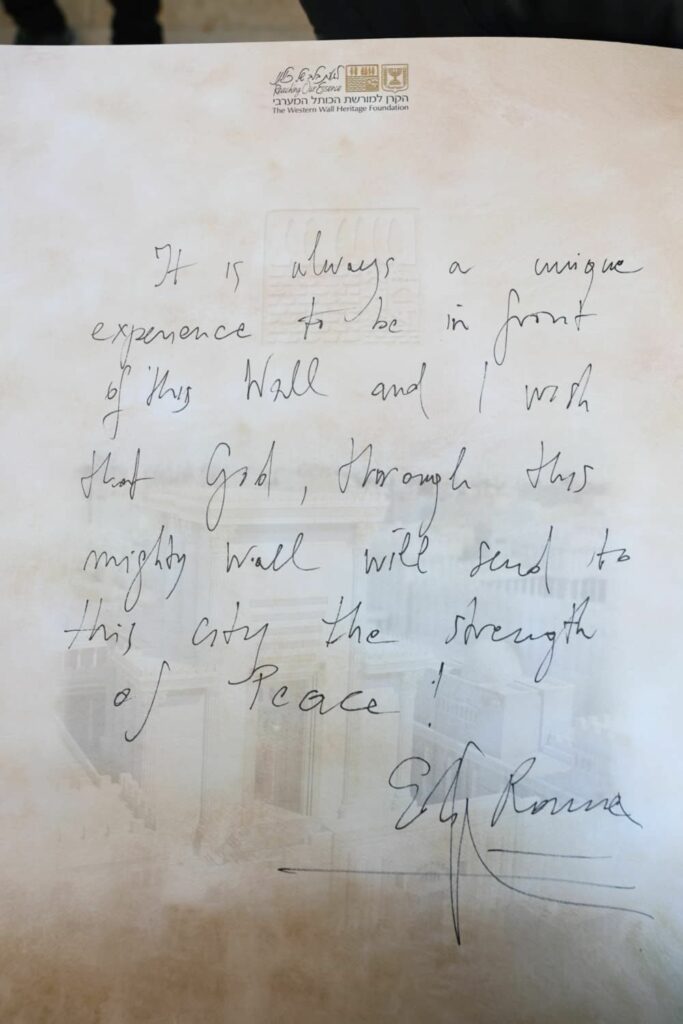 Reaching Our Essence
הקרן למורשת הכותל המערבי
The Western Wall Heritage Foundation
It is always a unique
experience to be in front
of this Wall and I wish
that God, through this
mighty wall will send to
this city the strength
of Peace!